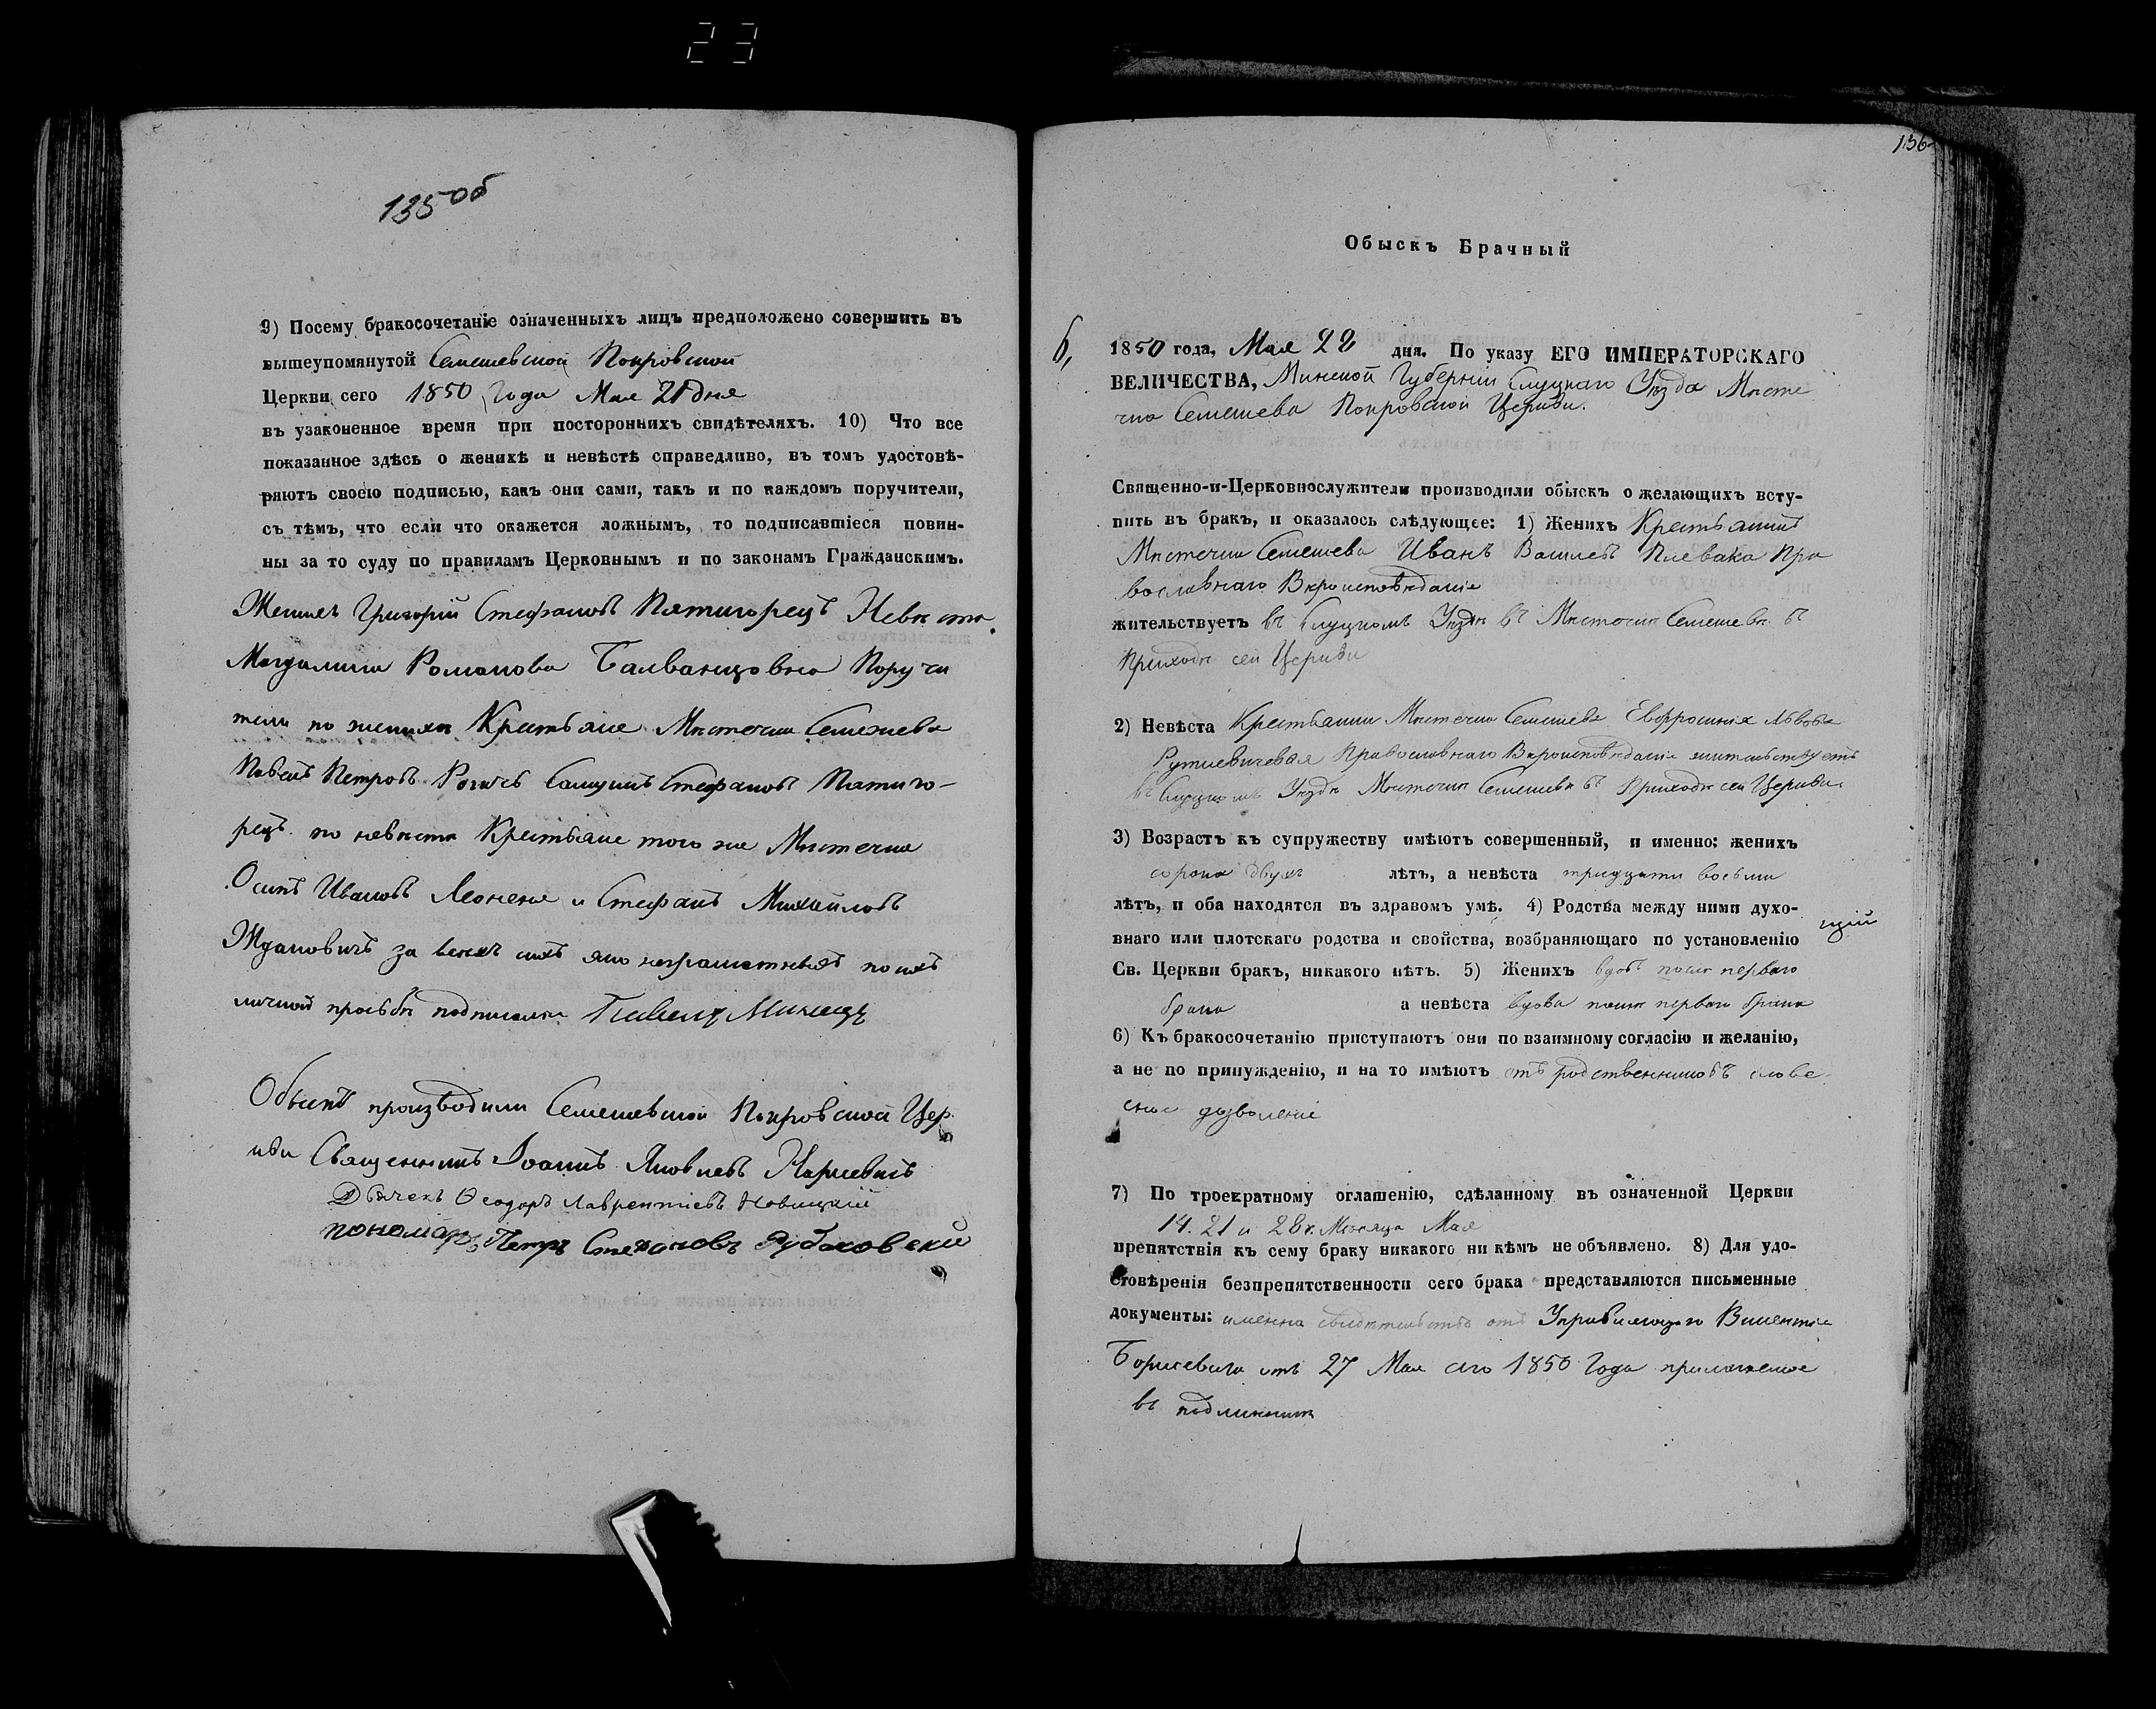 23
135 об
9) Посему бракосочетаніе означенныхъ лицъ предположено совершить въ
вышеупомянутой Семежевской Покровской
Церкви сего 1850 Года Мая 21 дня
въ узаконенное время при постороннихъ свидѣтеляхъ. 10) Что все
показанное здѣсь о женихѣ и невѣстѣ справедливо, въ томъ удостовѣ-
ряютъ своею подписью, какъ они сами, такъ и по каждомъ поручители,
съ тѣмъ, что если что окажется ложнымъ, то подписавшіеся повин-
ны за то суду по правиламъ Церковнымъ и по законамъ Гражданскимъ.
Женихъ Григорій Стефановъ Пятигорецъ Невѣста
Магдалина Романова Балванцовна Поручи
тели по женихѣ Крестьяне Мѣстечка Семежева
Павелъ Петровъ Стефановъ Пятиго-
рецъ по невѣстѣ Крестьяне того же Мѣстечка
Осипъ Ивановъ и Стефанъ Михайловъ
Ждановичъ за всехъ ихъ яко неграмотныхъ по ихъ
личной прозьбѣ подписался Павелъ
Обыскъ производили Семежевской Покровской Цер
кви Священникъ Іоаннъ Яковлевъ
Дьячекъ Ѳеодоръ Лаврентіевъ Новицкій
пономарь Петръ Стефановъ
136
Обыскъ Брачный
6,
1850 года, Мая 22 дня. По указу ЕГО ИМПЕРАТОРСКАГО
ВЕЛИЧЕСТВА, Минской Губерніи Слуцкаго Уѣзда Мѣсте
чка Семежева Покровской Церкви.
Священно-и-Церковнослужители производили обыскъ о желающихъ всту-
пить въ бракъ, и оказалось слѣдующее: 1) Женихъ Крестьянинъ
Мѣстечка Семежева Иванъ Васильевъ Плевака Пра
вославнаго Вѣроисповѣданіе
жительствуетъ въ Слуцкомъ Уѣздѣ въ Мѣстечкѣ Семежевѣ въ
Приходѣ сей Церкви
2) Невѣста Крестьянка Мѣстечка Семежева Евфросинія Львова
Православнаго Вѣроисповѣданіе жительствуетъ
въ Слуцкомъ Уѣздѣ Мѣстечкѣ Семежевѣ въ Приходѣ сей Церкви
3) Возрастъ къ супружеству имѣютъ совершенный, и именно: женихъ
сорока двухъ лѣтъ, а невѣста тридцати восьми
лѣтъ, и оба находятся въ здравомъ умѣ. 4) Родства между ними духо-
внаго или плотскаго родства и свойства, возбраняющаго по установленію
Св. Церкви бракъ, никакого нѣтъ. 5) Женихъ вдовъ послѣ перваго
брака а невѣста вдова послѣ перваго брака
6) Къ бракосочетанію приступаютъ они по взаимному согласію и желанію,
а не по принужденію, и на то имѣютъ отъ родственниковъ слове
сное дозволеніе
7) По троекратному оглашенію, сдѣланному въ означенной Церкви
14. 21 и 28 ч. Мѣсяца Мая
препятствія къ сему браку никакого ни кѣмъ не объявлено. 8) Для удо-
стовѣренія безпрепятственности сего брака представляются письменные
документы: именно свидѣтельство отъ Управляющаго Викентія
Борисевича отъ 27 Мая сего 1850 Года приложеное
въ подлинникѣ